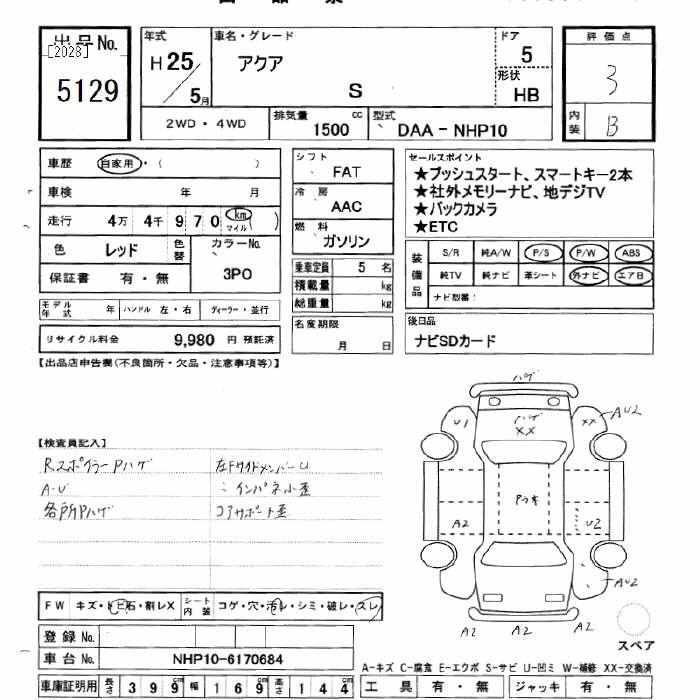 出品 No. 年式 車名・グレード ドア 評価点
[2028] H 25 アクア 5 3
5129 / 5月 S 形状 HB 内装 B
2WD・4WD 排気量 1500 cc 型式 DAA-NHP10
車歴 自家用・( )
車検 年 月
走行 4万 4千 9 7 0 km マイル ( )
色 レッド 色替 カラーNo. 3P0
保証書 有・無
モデル年式 年 ハンドル 左・右 ディーラー・並行
リサイクル料金 9,980 円 預託済
シフト FAT
冷房 AAC
燃料 ガソリン
乗車定員 5 名
積載量 kg
総重量 kg
名変期限 月 日
セールスポイント
★プッシュスタート、スマートキー2本
★社外メモリーナビ、地デジTV
★バックカメラ
★ETC
装備品 S/R 純A/W P/S P/W ABS
純TV 純ナビ 革シート 外ナビ エアB
ナビ型番:
後日品
ナビSDカード
【出品店申告欄(不良箇所・欠品・注意事項等)】
【検査員記入】
Rスポイラー Pハゲ 左Fサイドメンバー U
A・U : インパネ小歪
各所Pハゲ コアサポート歪
ハゲ
U1 ハゲ XX XX AU2
Pウキ
A2 U2
AU2
A2 A2 A2
スペア
FW キズ・トビ石・割レX シート内装 コゲ・穴・汚レ・シミ・破レ・スレ
登録 No.
車台 No. NHP10-6170684
車庫証明用 長さ 3 9 9 cm 幅 1 6 9 cm 高さ 1 4 4 cm
A-キズ C-腐食 E-エクボ S-サビ U-凹ミ W-補修 XX-交換済
工具 有・無 ジャッキ 有・無